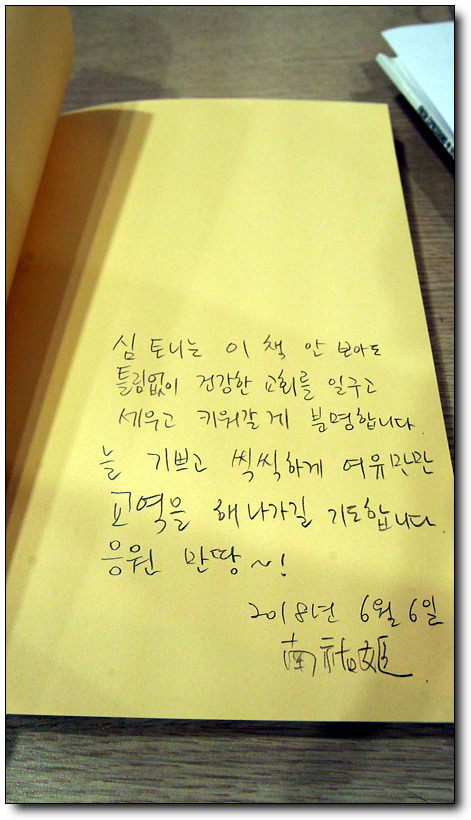 심 토니는 이 책 안 보아도
틀림없이 건강한 교회를 일구고
세우고 키워갈 게 분명합니다.
늘 기쁘고 씩씩하게 여유만만
교역을 해 나가길 기도합니다.
응원 만땅~!
2018년 6월 6일
南祐姬.